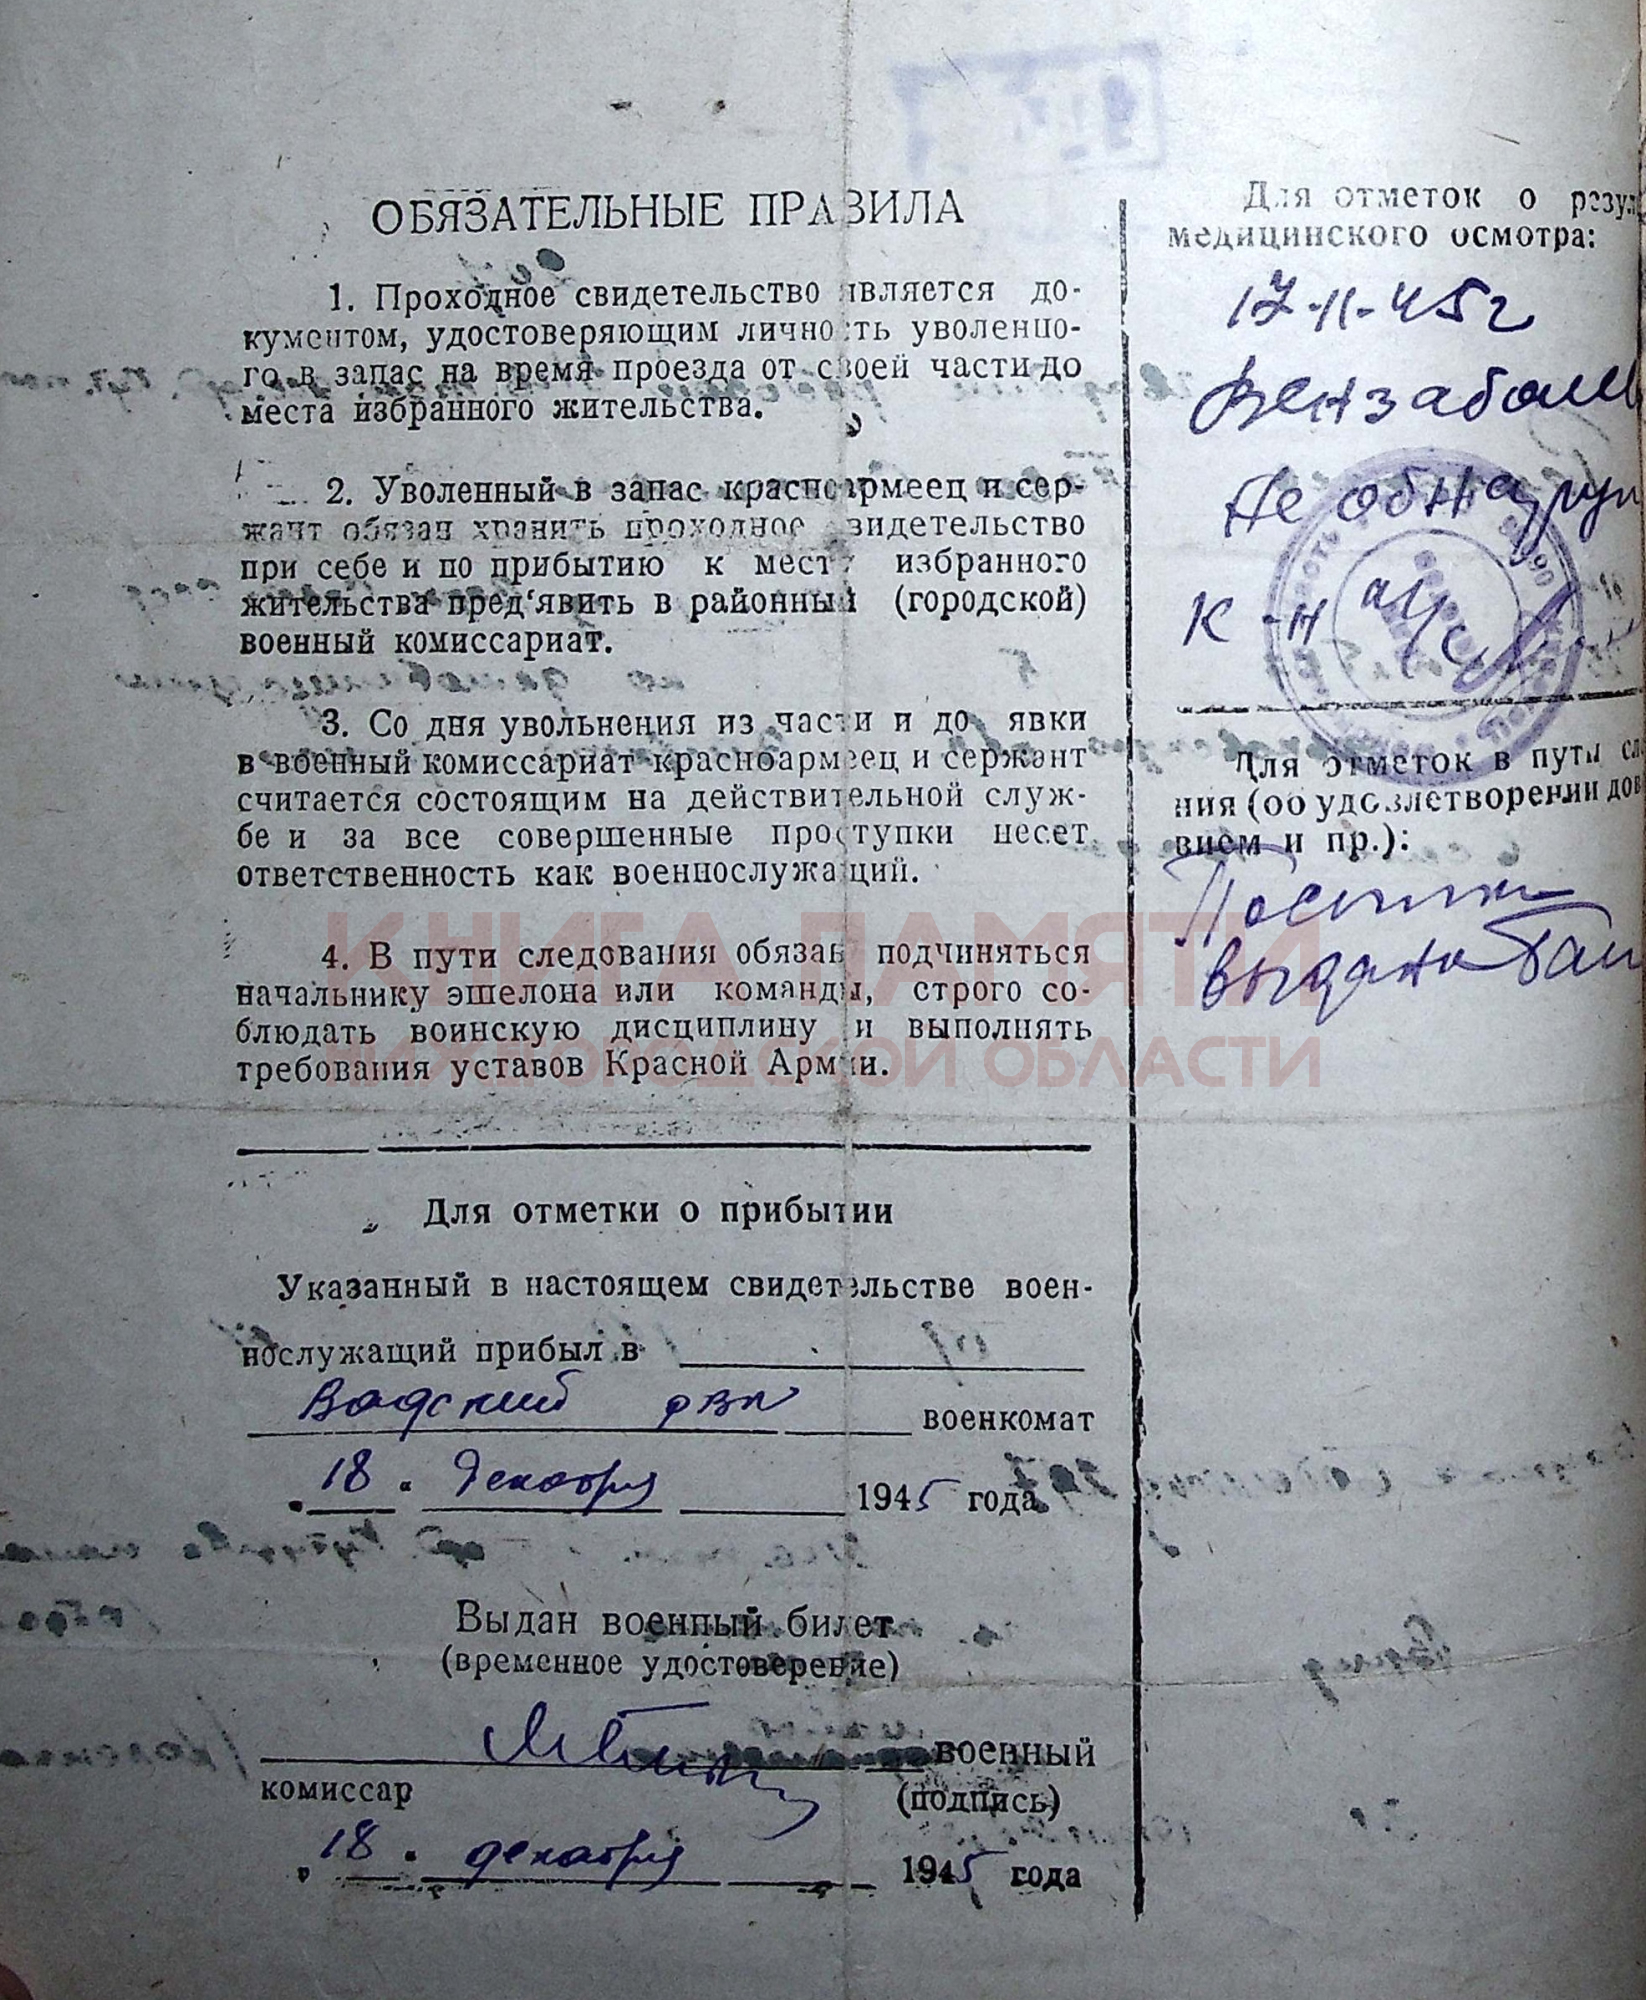 ОБЯЗАТЕЛЬНЫЕ ПРАВИЛА
1. Проходное свидетельство является до-
кументом, удостоверяющим личность уволенно-
го в запас на время проезда от своей части до
места избранного жительства.
2. Уволенный в запас красноармеец и сер-
жант обязан хранить проходное свидетельство
при себе и по прибытию к месту избранного
жительства пред‘явить в районный (городской)
военный комиссариат.
3. Со дня увольнения из части и до явки
в военный комиссариат красноармеец и сержант
считается состоящим на действительной служ-
бе и за все совершенные проступки несет
ответственность как военнослужащий.
4. В пути следования обязан подчиняться
начальнику эшелона или команды, строго со-
блюдать воинскую дисциплину и выполнять
требования уставов Красной Армии.
Для отметки о прибытии
Указанный в настоящем свидетельстве воен-
нослужащий прибыл в
Вадский рвк военкомат
18 . декабря 1945 года
Выдан военный билет
(временное удостоверение)
военный
комиссар (подпись)
18 . декабря 1945 года
Для отметок о резул
медицинского осмотра:
17-11-45г
Вензаболев
Не обнаруж
К-н м/с
Для отметок в пути сл
ния (об удовлетворении дов
вием и пр.):
выдано
КНИГА ПАМЯТИ
НИЖЕГОРОДСКОЙ ОБЛАСТИ